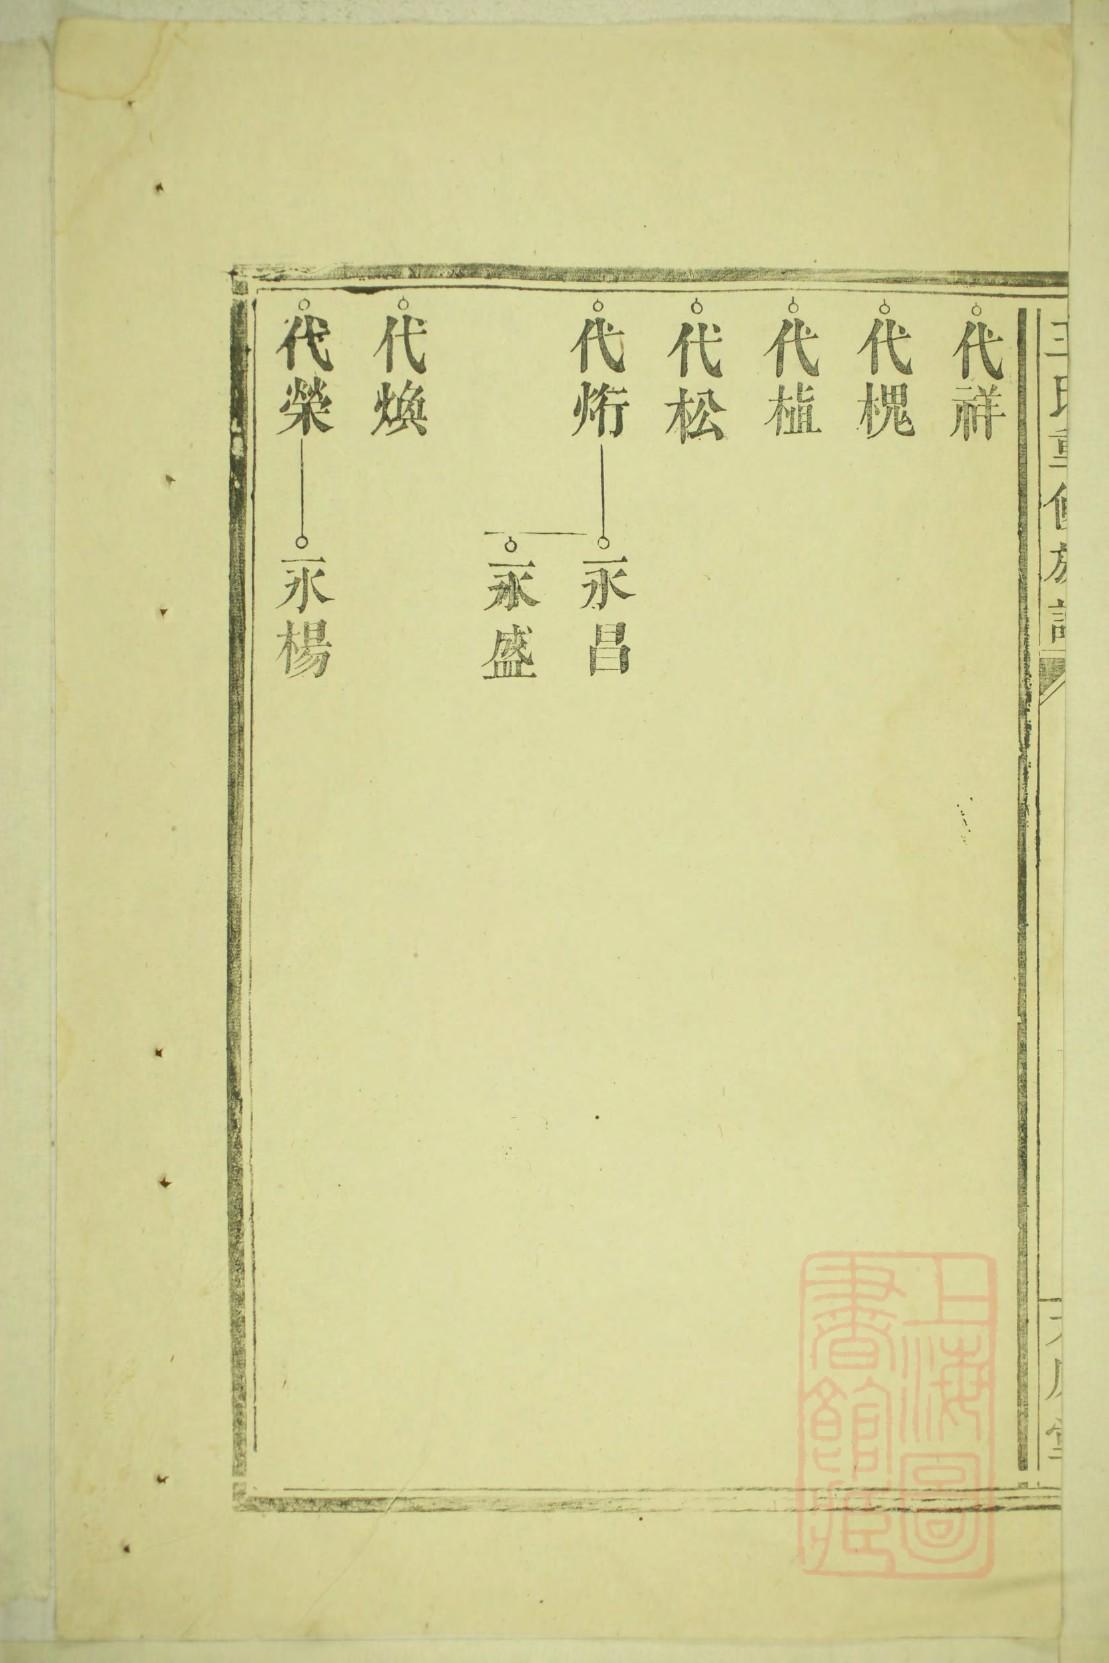 王氏重修族譜
代祥
代槐
代植
代松
代烆
永昌
永盛
代煥
代榮
永楊
上海圖
書館藏